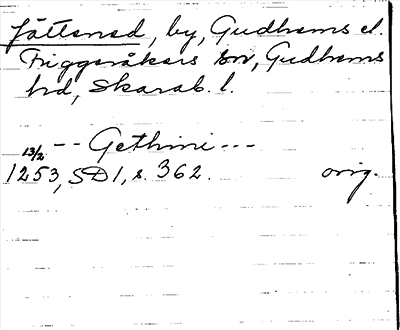 Jättened, by, Gudhems el.
Friggeråkers sn, Gudhems
hd, Skarab. l.
-- Gethini ---
13/2
1253, SD 1, s. 362. orig.